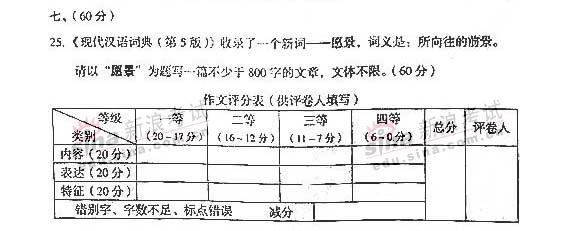 七、(60分)
25.《现代汉语词典(第5版)》收录了一个新词——愿景,词义是:所向往的前景。
请以“愿景”为题写一篇不少于800字的文章,文体不限。(60分)
作文评分表(供评卷人填写)
等级 类别 一等 (20-17分) 二等 (16-12分) 三等 (11-7分) 四等 (6-0分) 总分 评卷人
内容(20分)
表达(20分)
特征(20分)
错别字、字数不足、标点错误 减分
sina 新浪考试
edu.sina.com.cn